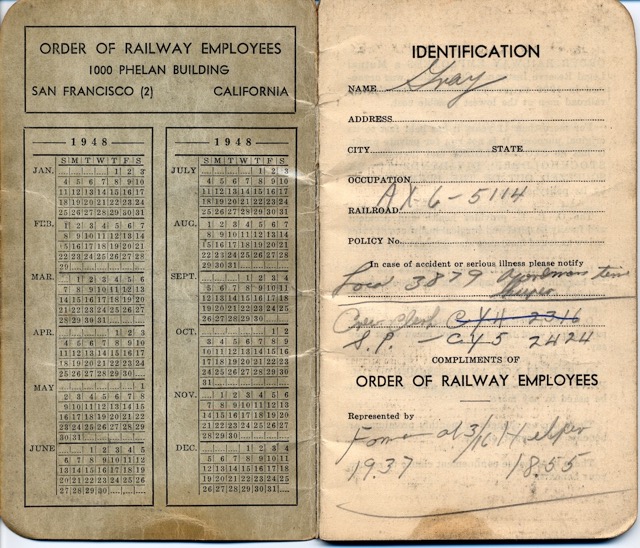 ORDER OF RAILWAY EMPLOYEES
1000 PHELAN BUILDING
SAN FRANCISCO (2) CALIFORNIA
1948
S M T W T F S
JAN. 1 2 3
4 5 6 7 8 9 10
11 12 13 14 15 16 17
18 19 20 21 22 23 24
25 26 27 28 29 30 31
FEB. 1 2 3 4 5 6 7
8 9 10 11 12 13 14
15 16 17 18 19 20 21
22 23 24 25 26 27 28
29
MAR. 1 2 3 4 5 6
7 8 9 10 11 12 13
14 15 16 17 18 19 20
21 22 23 24 25 26 27
28 29 30 31
APR. 1 2 3
4 5 6 7 8 9 10
11 12 13 14 15 16 17
18 19 20 21 22 23 24
25 26 27 28 29 30
MAY 1
2 3 4 5 6 7 8
9 10 11 12 13 14 15
16 17 18 19 20 21 22
23 24 25 26 27 28 29
30 31
JUNE 1 2 3 4 5
6 7 8 9 10 11 12
13 14 15 16 17 18 19
20 21 22 23 24 25 26
27 28 29 30
1948
S M T W T F S
JULY 1 2 3
4 5 6 7 8 9 10
11 12 13 14 15 16 17
18 19 20 21 22 23 24
25 26 27 28 29 30 31
AUG. 1 2 3 4 5 6 7
8 9 10 11 12 13 14
15 16 17 18 19 20 21
22 23 24 25 26 27 28
29 30 31
SEPT. 1 2 3 4
5 6 7 8 9 10 11
12 13 14 15 16 17 18
19 20 21 22 23 24 25
26 27 28 29 30
OCT. 1 2
3 4 5 6 7 8 9
10 11 12 13 14 15 16
17 18 19 20 21 22 23
24 25 26 27 28 29 30
31
NOV. 1 2 3 4 5 6
7 8 9 10 11 12 13
14 15 16 17 18 19 20
21 22 23 24 25 26 27
28 29 30
DEC. 1 2 3 4
5 6 7 8 9 10 11
12 13 14 15 16 17 18
19 20 21 22 23 24 25
26 27 28 29 30 31
IDENTIFICATION
NAME Gray
ADDRESS
CITY STATE
OCCUPATION
RAILROAD AX-6-5114
POLICY No.
In case of accident or serious illness please notify
3879 time
Keeper
Clerk CYH 2316
S.P. - CY5 2424
COMPLIMENTS OF
ORDER OF RAILWAY EMPLOYEES
Represented by
at 3/16 Helper
19.37 18.55